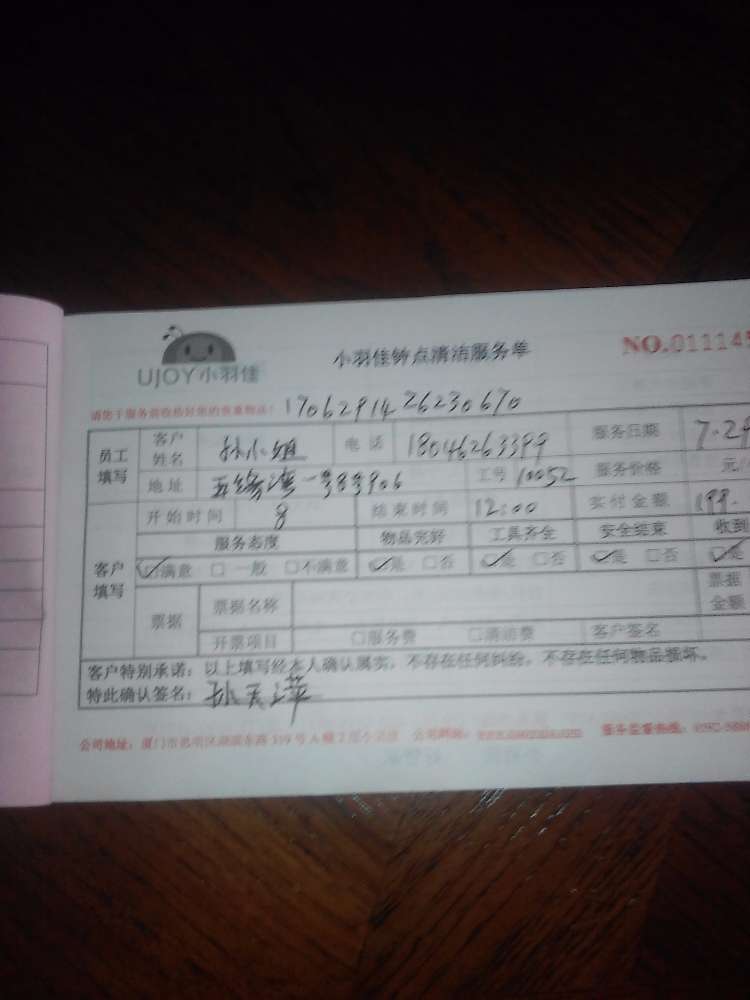 UJOY小羽佳
小羽佳钟点清洁服务单
NO.011145
请您于服务前收拾好您的贵重物品: 1706291426230670
员工填写 客户姓名 孙小姐 电话 18046263399 服务日期 7.29
地址 五缘湾一号8号906 工号 10052 服务价格 元/
开始时间 8 结束时间 12:00 实付金额 199.
客户填写 服务态度 物品完好 工具齐全 安全结束 收到
☑满意 □一般 □不满意 ☑是 □否 ☑是 □否 ☑是 □否 ☑是
票据 票据名称 票据金额
开票项目 □服务费 □清洁费 客户签名
客户特别承诺:以上填写经本人确认属实,不存在任何纠纷,不存在任何物品损坏。
特此确认签名: 孙天萍
公司地址:厦门市思明区湖滨东路319号A幢2层小羽佳 公司网站: 服务监督热线:0592-